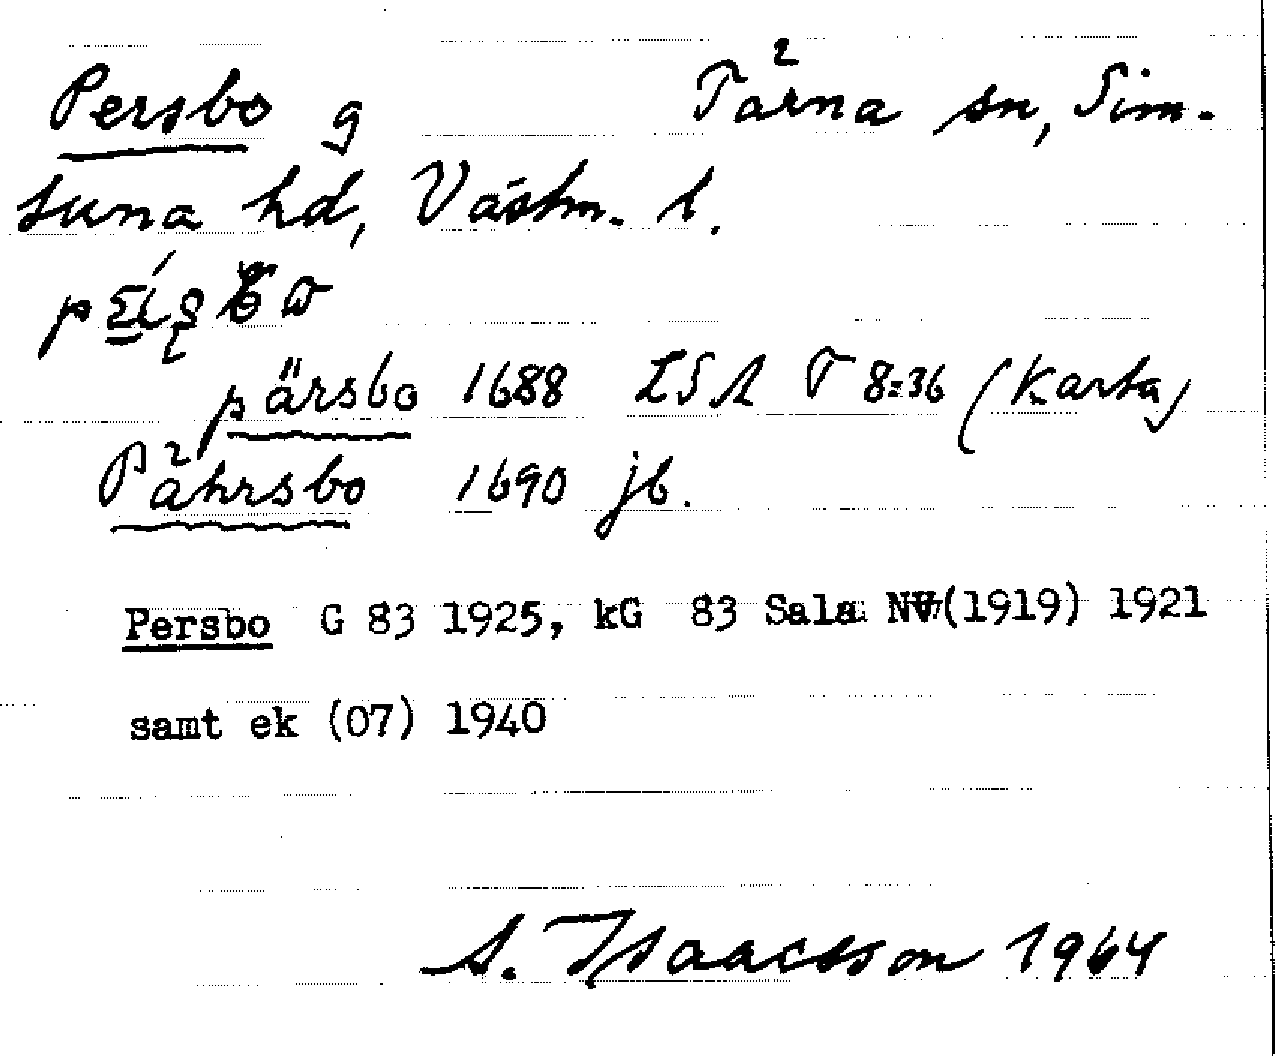 Persbo g Tärna sn, Sim-
tuna hd, Västm. l.
pärsbo 1688 LSA T 8:36 (Karta)
Påhrsbo 1690 jb.
Persbo G 83 1925, kG 83 Sala NV(1919) 1921
samt ek (07) 1940
A. Isaacsson 1964